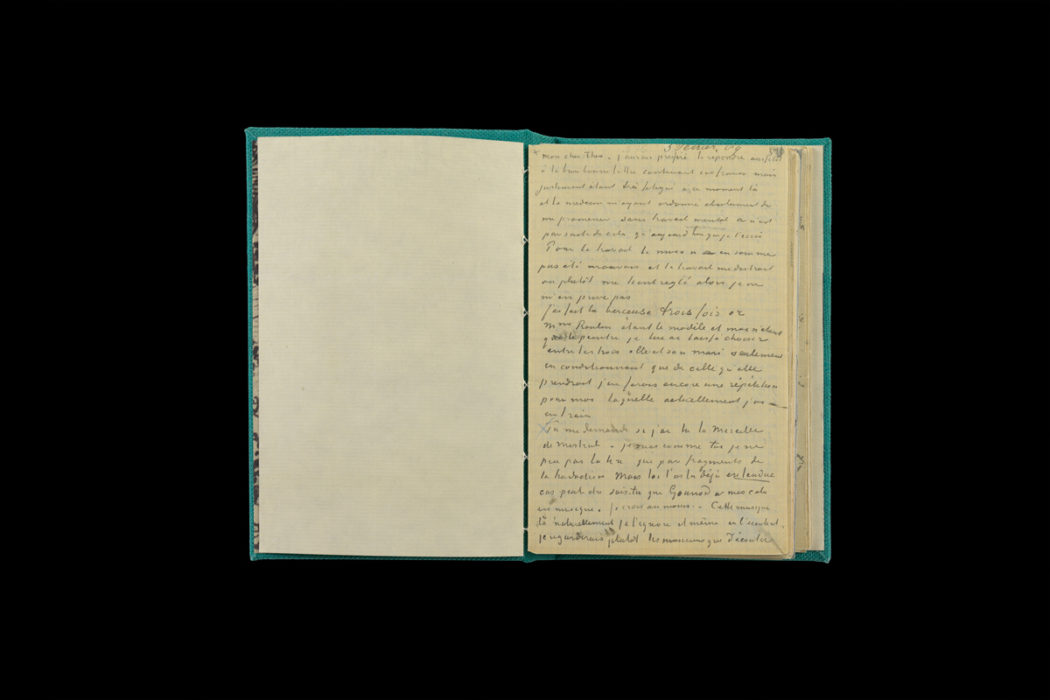 3 fevrier, 89
mon cher Theo – j'aurais préféré te répondre aussitôt
à ta bien bonne lettre contenant cent francs mais
justement étant très fatigué à ce moment là
et le médecin m'ayant ordonné absolument de
me promener sans travail mental ce n'est
par suite de cela qu'aujourd'hui que je t'écris
Pour le travail le mois n'a en somme
pas été mauvais et le travail me distrait
ou plutôt me tient reglé alors je ne
m'en prive pas
J'ai fait la berceuse trois fois or
mme Roulin étant le modèle et moi n'étant
que le peintre je lui ai laissé choisir
entre les trois elle et son mari seulement
en conditionnant que de celle qu'elle
prendrait j'en ferais encore une répétition
pour moi laquelle actuellement j'ai
en train
Tu me demandes si j'ai lu la Mireille
de mistral – je suis comme toi je ne
peu pas la lire que par fragments de
la traduction Mais toi l'as tu déjà entendue
car peut être sais tu que Gounod a mis cela
en musique. Je crois au moins. – Cette musique
là naturellement je l'ignore et même en l'écoutant
je regarderais plutôt les musiciens que d'écouter